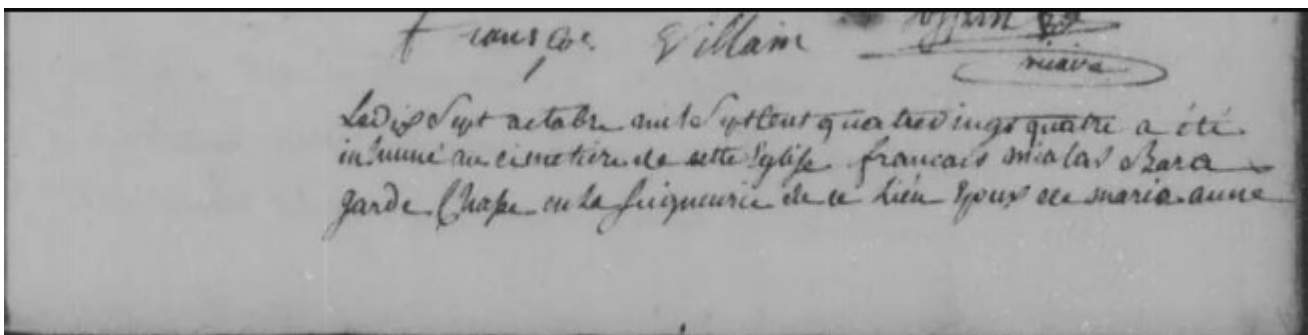 françois Villain
vicaire
Le dix Sept octobre mil Sept Cent quatrevingt quatre a été
inhumé au cimetiere de cette Eglise francois nicolas Bara
garde Chasse en la Seigneurie de ce Lieu Epoux de maria anne